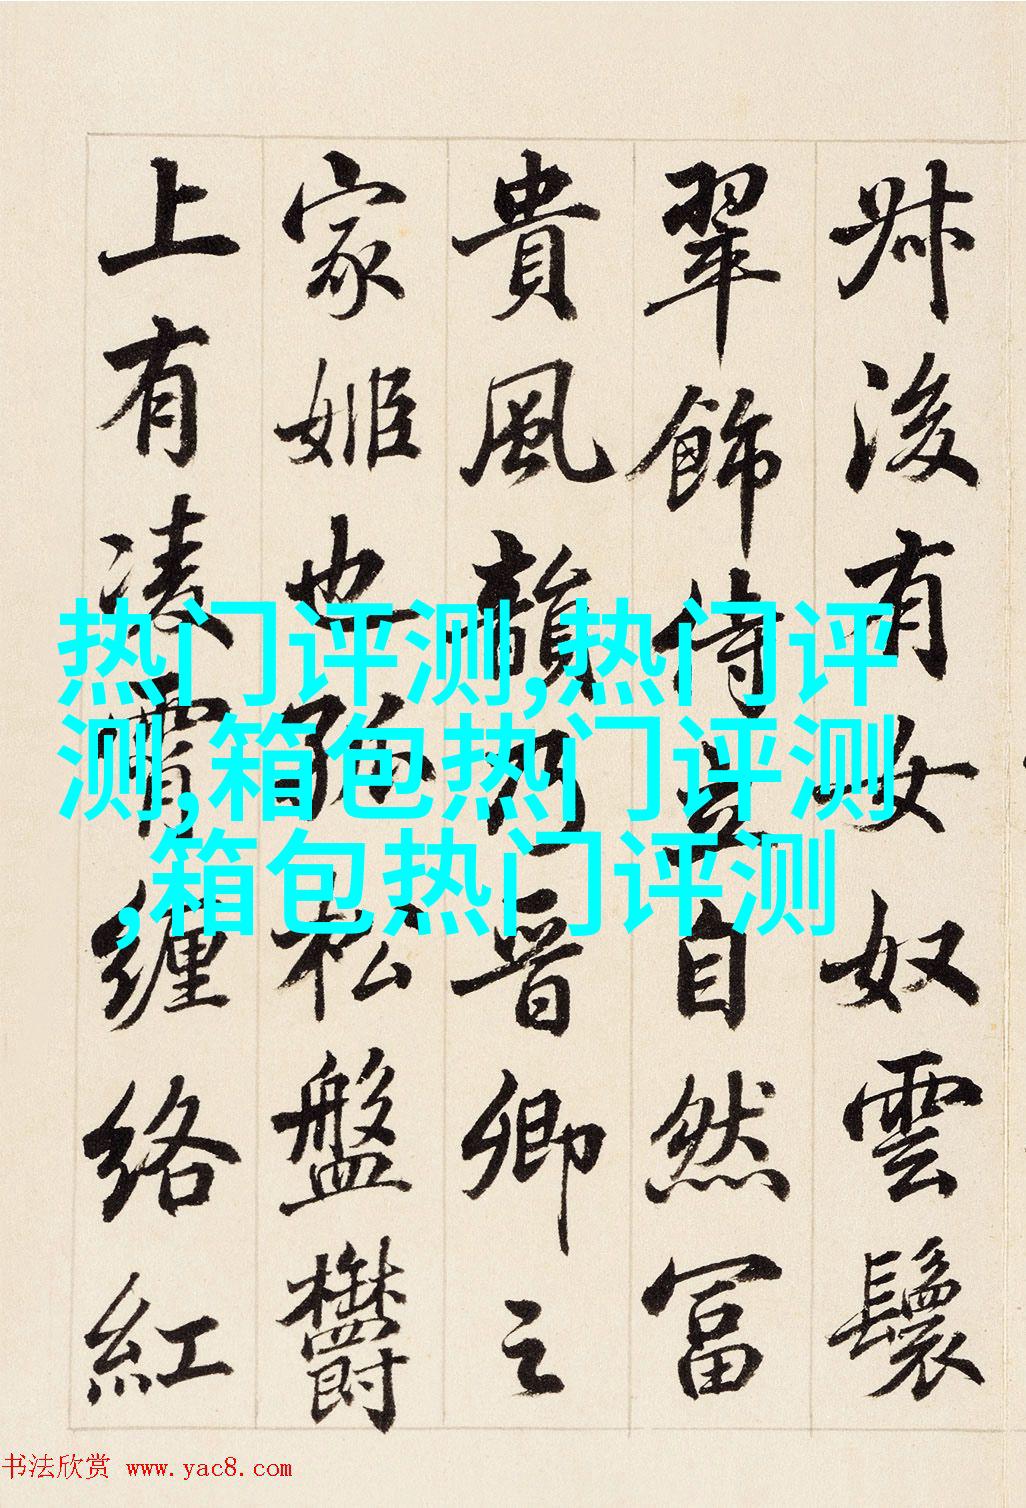 叔後有女奴雲鬟
翠飾侍立自然富
貴風韻乃晋卿之
家姬也孤松盤鬱
上有凌霄纏絡紅
热门评测,热门评
测,箱包热门评测
,箱包热门评测
书法欣赏 www.yac8.com